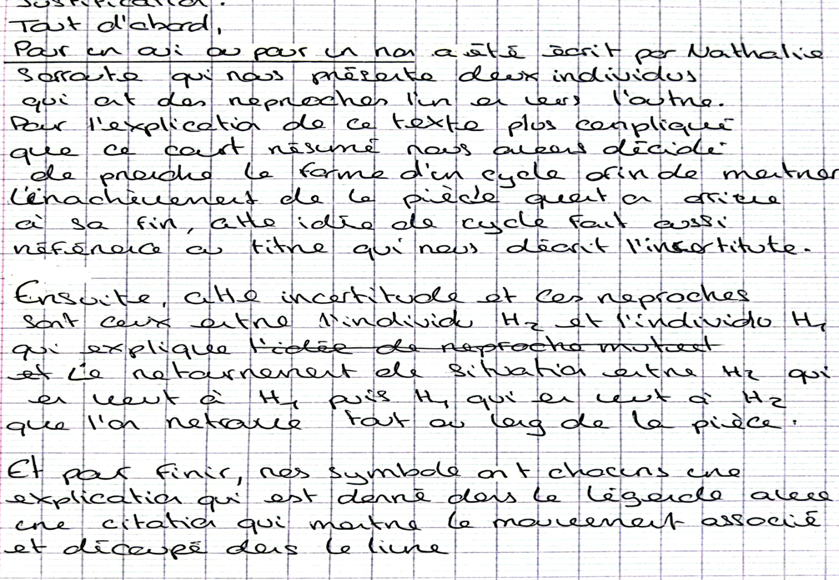 Justification.
Tout d'abord,
Pour un oui ou pour un non a été écrit par Nathalie
Sarraute qui nous présente deux individus
qui ont des reproches l'un en vers l'autre.
Pour l'explication de ce texte plus compliqué
que ce court résumé nous avons décidé
de prendre la forme d'un cycle afin de montrer
l'inachèvement de la pièce quant on arrive
à sa fin, cette idée de cycle fait aussi
référence au titre qui nous décrit l'insertitute.
Ensuite, cette incertitude et ces reproches
sont ceux entre l'individu H2 et l'individu H1
qui explique l'idée de reproche mutuel
et Le retournement de situation entre H2 qui
en veut à H1 puis H1 qui en veut à H2
que l'on retrouve tout au long de la pièce.
Et pour finir, nos symbole ont chacuns une
explication qui est donné dans la légende avec
une citation qui montre le mouvement associé
et découpé dans le livre